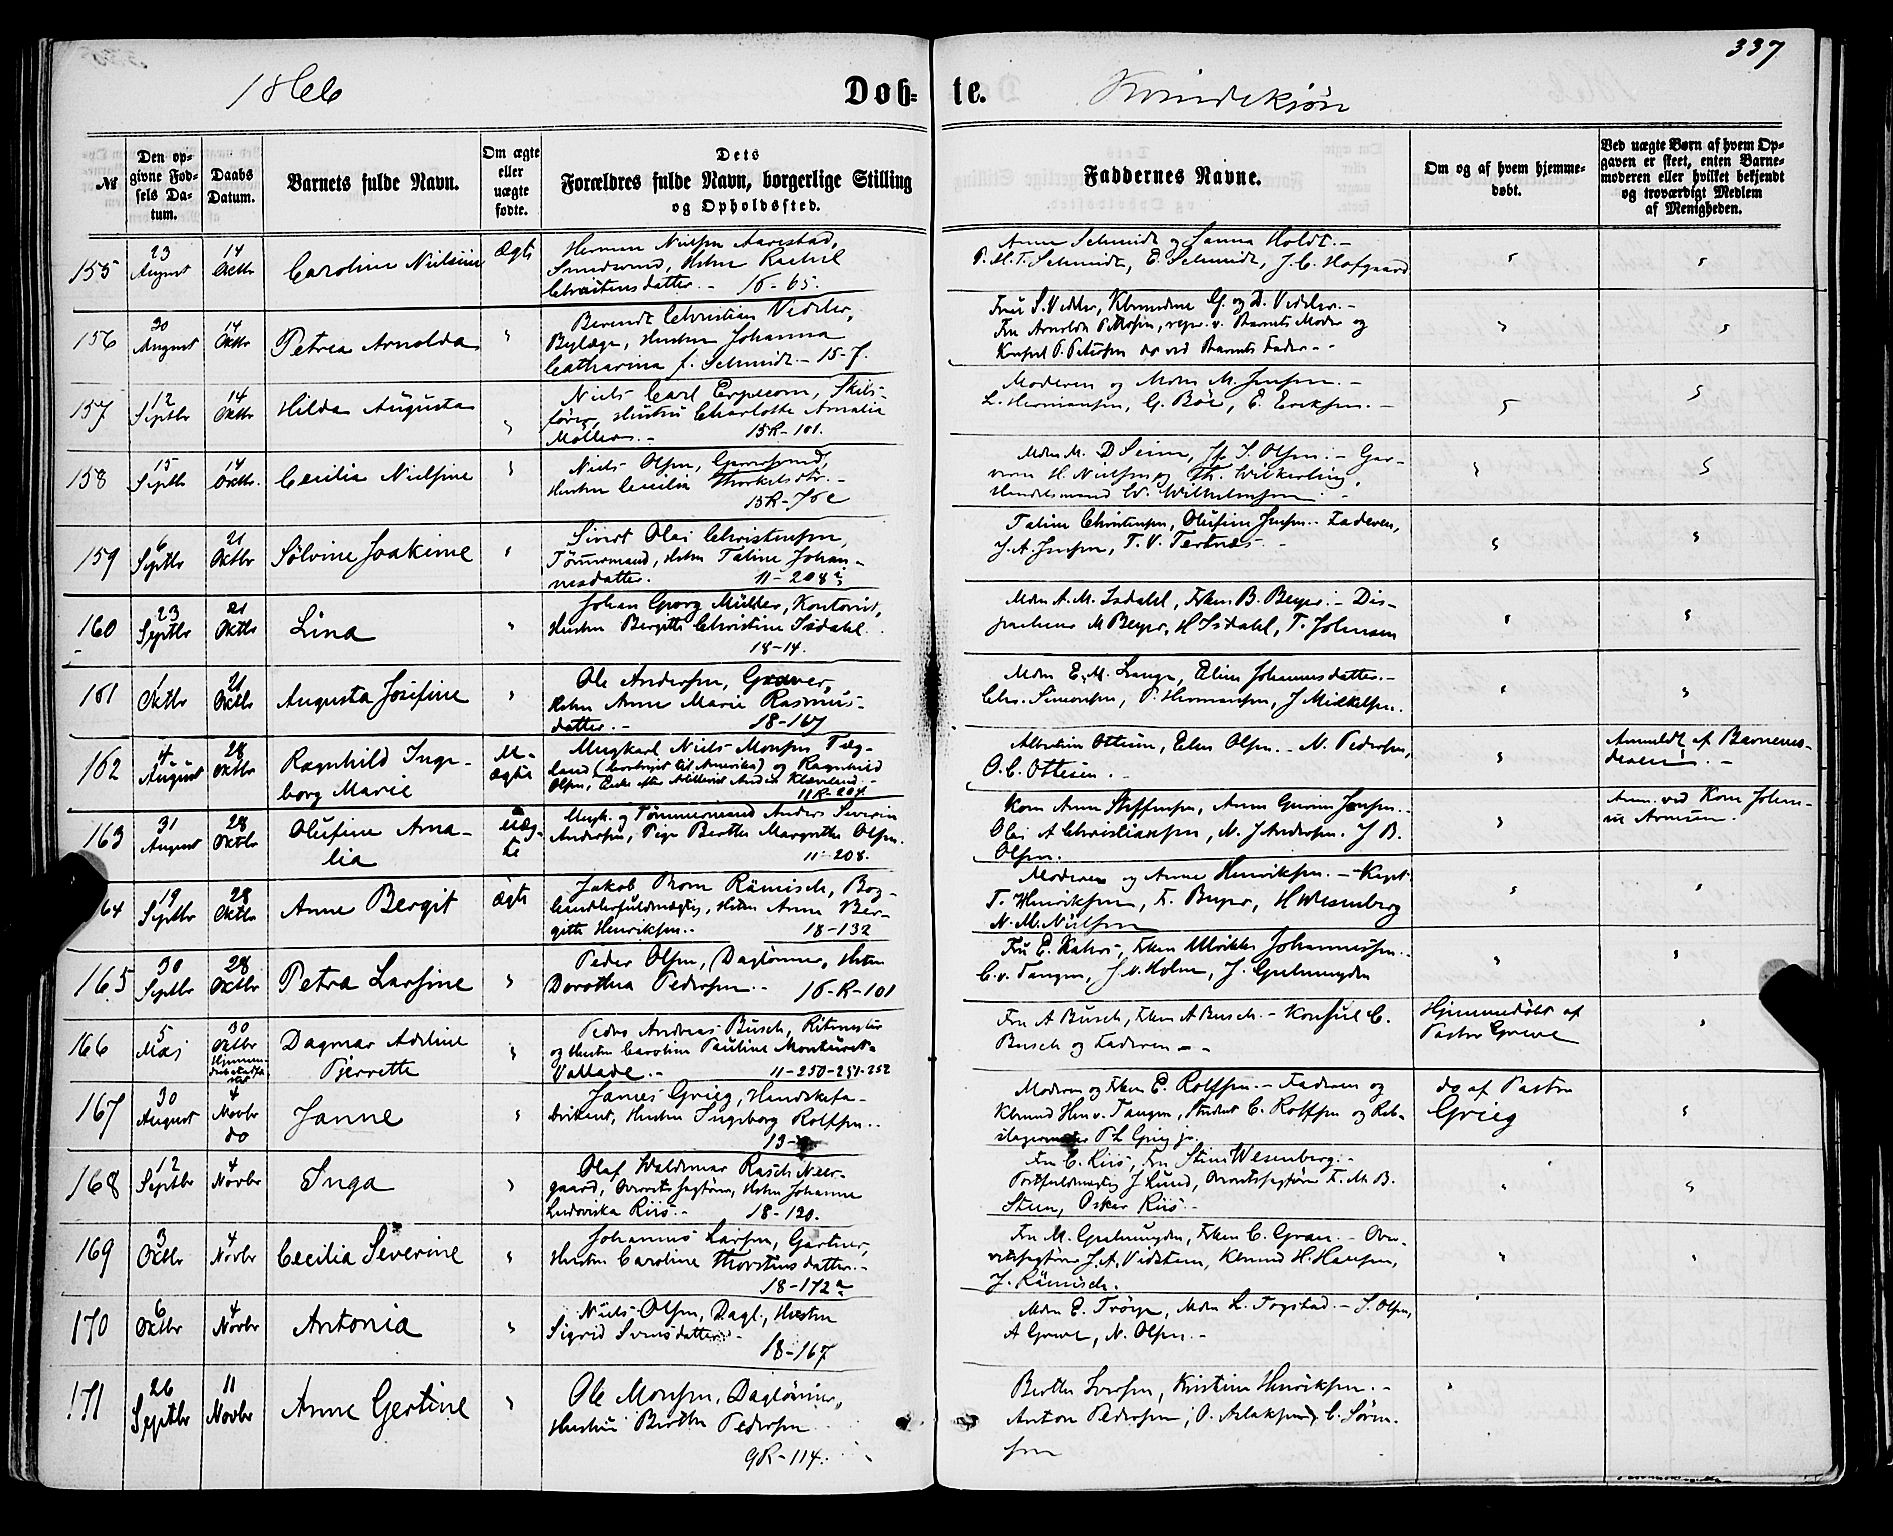 337
1866 Døb= te. Kvindekjøn
№
Den op=
givne Fød=
sels Da=
tum.
Daabs
Datum.
Barnets fulde Navn.
Om ægte
eller
uægte
fødte.
Dets
Forældres fulde Navn, borgerlige Stilling
og Opholdssted.
Faddernes Navne.
Om og af hvem hjemme=
døbt.
Ved uægte Børn af hvem Op=
gaven er skeet, enten Barne=
moderen eller hvilket bekjendt
og troværdigt Medlem
af Menigheden.
155
23
August
14
Oktbr
Caroline Nielsine
Ægte
Herman Nielsen Aarestad,
Hstru Rachel
Christensdatter. - 16-65.
Anna Schmidt og Hanna Holdt. -
P. M. T. Schmidt, E. Schmidt, J. C. Hofgaard
156
30
August
14
Oktbr
Petrea Arnolda
Berendt Christian Vedeler,
Hustru Johanna
Catharina f. Schmidt - 15-7.
Fru S. Vedeler, G. og D. Vedeler. -
Fru Arnolda Petersen, repr. v. Barnets Moder og
Konsul P. Petersen do ved Barnets Fader. -
157
12
Septbr
14
Oktbr
Hilda Augusta
Niels Carl Erpecom, Skibs-
fører, Hustru Charlotte Amalia
Möller. - 15R-101.
Moderen og Mdm M. Jensen. -
L. Hermansen, G. Böe, E. Eriksen. -
158
15
Septbr
14
Oktbr.
Cecilia Nielsine
Niels Olsen,
Hustru Cecilia Thorkelsdtr. -
15R-76c
Mdm M. D Seim, Jfr S. Olsen. - Gar-
H. Nielsen og Th. Wilkerling,
Handelsmand W. Wilhelmsen. -
159
6
Septbr
21
Oktbr
Sölvine Joakime
Sivert Olai Christensen,
Tömmermand, Hstru Taline Johan-
nesdatter. 11-208
Taline Christensen, Olufine Jensen. - Faderen,
J. A. Jensen, T. V. Tertnæs. -
160
23
Septbr
21
Oktbr
Lina
Johan Georg Müller, Kontorist,
Hustru Bergitte Christine Isdahl.
18-14.
Mdm A. M. Isdahl, Frkn B. Beyer. - Dis-
M Beyer, H Isdahl, T. Johnsen
161
1
Oktbr
21
Oktbr
Augusta Josefine
Ole Andersen, Graver,
Hstru Anne Marie Rasmus-
datter. - 18-167
Mdm E. M. Lange, Elen Johannesdatter. -
Chr. Simonsen, P. Hermansen, J Mikkelsen.
162
4
August
28
Oktbr
Ragnhild Inge-
borg Marie
U-
ægte
Ungkarl Niels Monsen Tæg-
land (bortreist til Amerika) og Ragnhild
Olsen, Enke efter Anders
11R-204
Albertine Ottesen, Elen Olsen. - N. Pedersen,
O. C. Ottesen. -
Anmeldt af Barnemo-
deren. -
163
31
August
28
Oktbr
Olufine Ama-
lia
Uæg-
te
Ungk. og Tömmermand Anders Severin
Andersen, Pige Berthe Margrethe Olsen.
11-208.
Kone Anne Steffensen, Anne Jensen. -
Olai A Christiansen, N. J Andersen. J B.
Olsen.
Anm. ved Kone
164
19
Septbr
28
Oktbr
Anne Bergit
ægte
Jakob Thom Rämisch, Bog-
handlerfuldmægtig, Hstru Anne Ber-
gitte Henriksen. - 18-132
Moderen og Anne Henriksen. - Kapt.
T. Henriksen, F. Beyer, H Wesenberg
N. M. Nielsen
165
30
Septbr
28
Oktbr
Petra Larsine
Peder Olsen, Daglönner, Hstru
Dorothea Pedersen. - 16-R-101
Fru E. Kahrs, Frkn Ulrikke Johannessen. -
C. v. Tangen, J. v. Holm, J. Gjelmuyden
166
5
Maj
30
Oktbr
Dagmar Adeline
Pjerrette
Peder Andreas Busch, Ritmester
og Hustru Caroline Pauline
Vallade. - 11-250-251-252
Fru A Busch, Frkn A Busch. - Konsul C.
Busch og Faderen - -
Hjemmedöbt af
Pastor Greve
167
30
August
4
Novbr
do
Janne
James Grieg, Handskefa-
brikant, Hustru Ingeborg Rolfsen. -
13-
Moderen og Frkn E. Rolfsen. - Faderen og
Kbmnd Hen v. Tangen, Student C. Rolfsen og Reb-
P L Grieg jr.
do af Pastor
Grieg
168
12
Septbr
4
Novbr
Inga
Olaf Waldemar Rasch Neer-
gaard, Overretssagförer, Hstru Johanne
Ludovika Riis. - 18-120.
Fru C. Riis, Fru Stine Wesenberg. -
Postfuldmægtig J Lund, Overretssagförer F. M. B.
Steen, Oskar Riis. -
169
3
Oktbr
4
Novbr
Cecilia Severine
Johannes Larsen, Gartner,
Hustru Caroline Thorstensdatter. -
18-172a
Fru M. Gjelmuyden, Frkn C. Gran. - Over-
retssagförer J. A. Vidsteen, Kbmnd H. Hansen,
J. Rämisch.
170
6
Oktbr
4
Novbr
Antonia
Niels Olsen, Dagl., Hustru
Sigrid Svensdatter. -
18-167
Mdm E. Tröye, Mdm L. Fogstad. - S. Olsen,
A Greve, N. Olsen. -
171
26
Septbr
11
Novbr
Anne Gertine
Ole Monsen, Daglönner,
Hustru Berthe Pedersen
9R-114.
Berthe Iversen, Kristine Henriksen. -
Anton Pedersen, O. Aslaksen, C. Sören-
sen